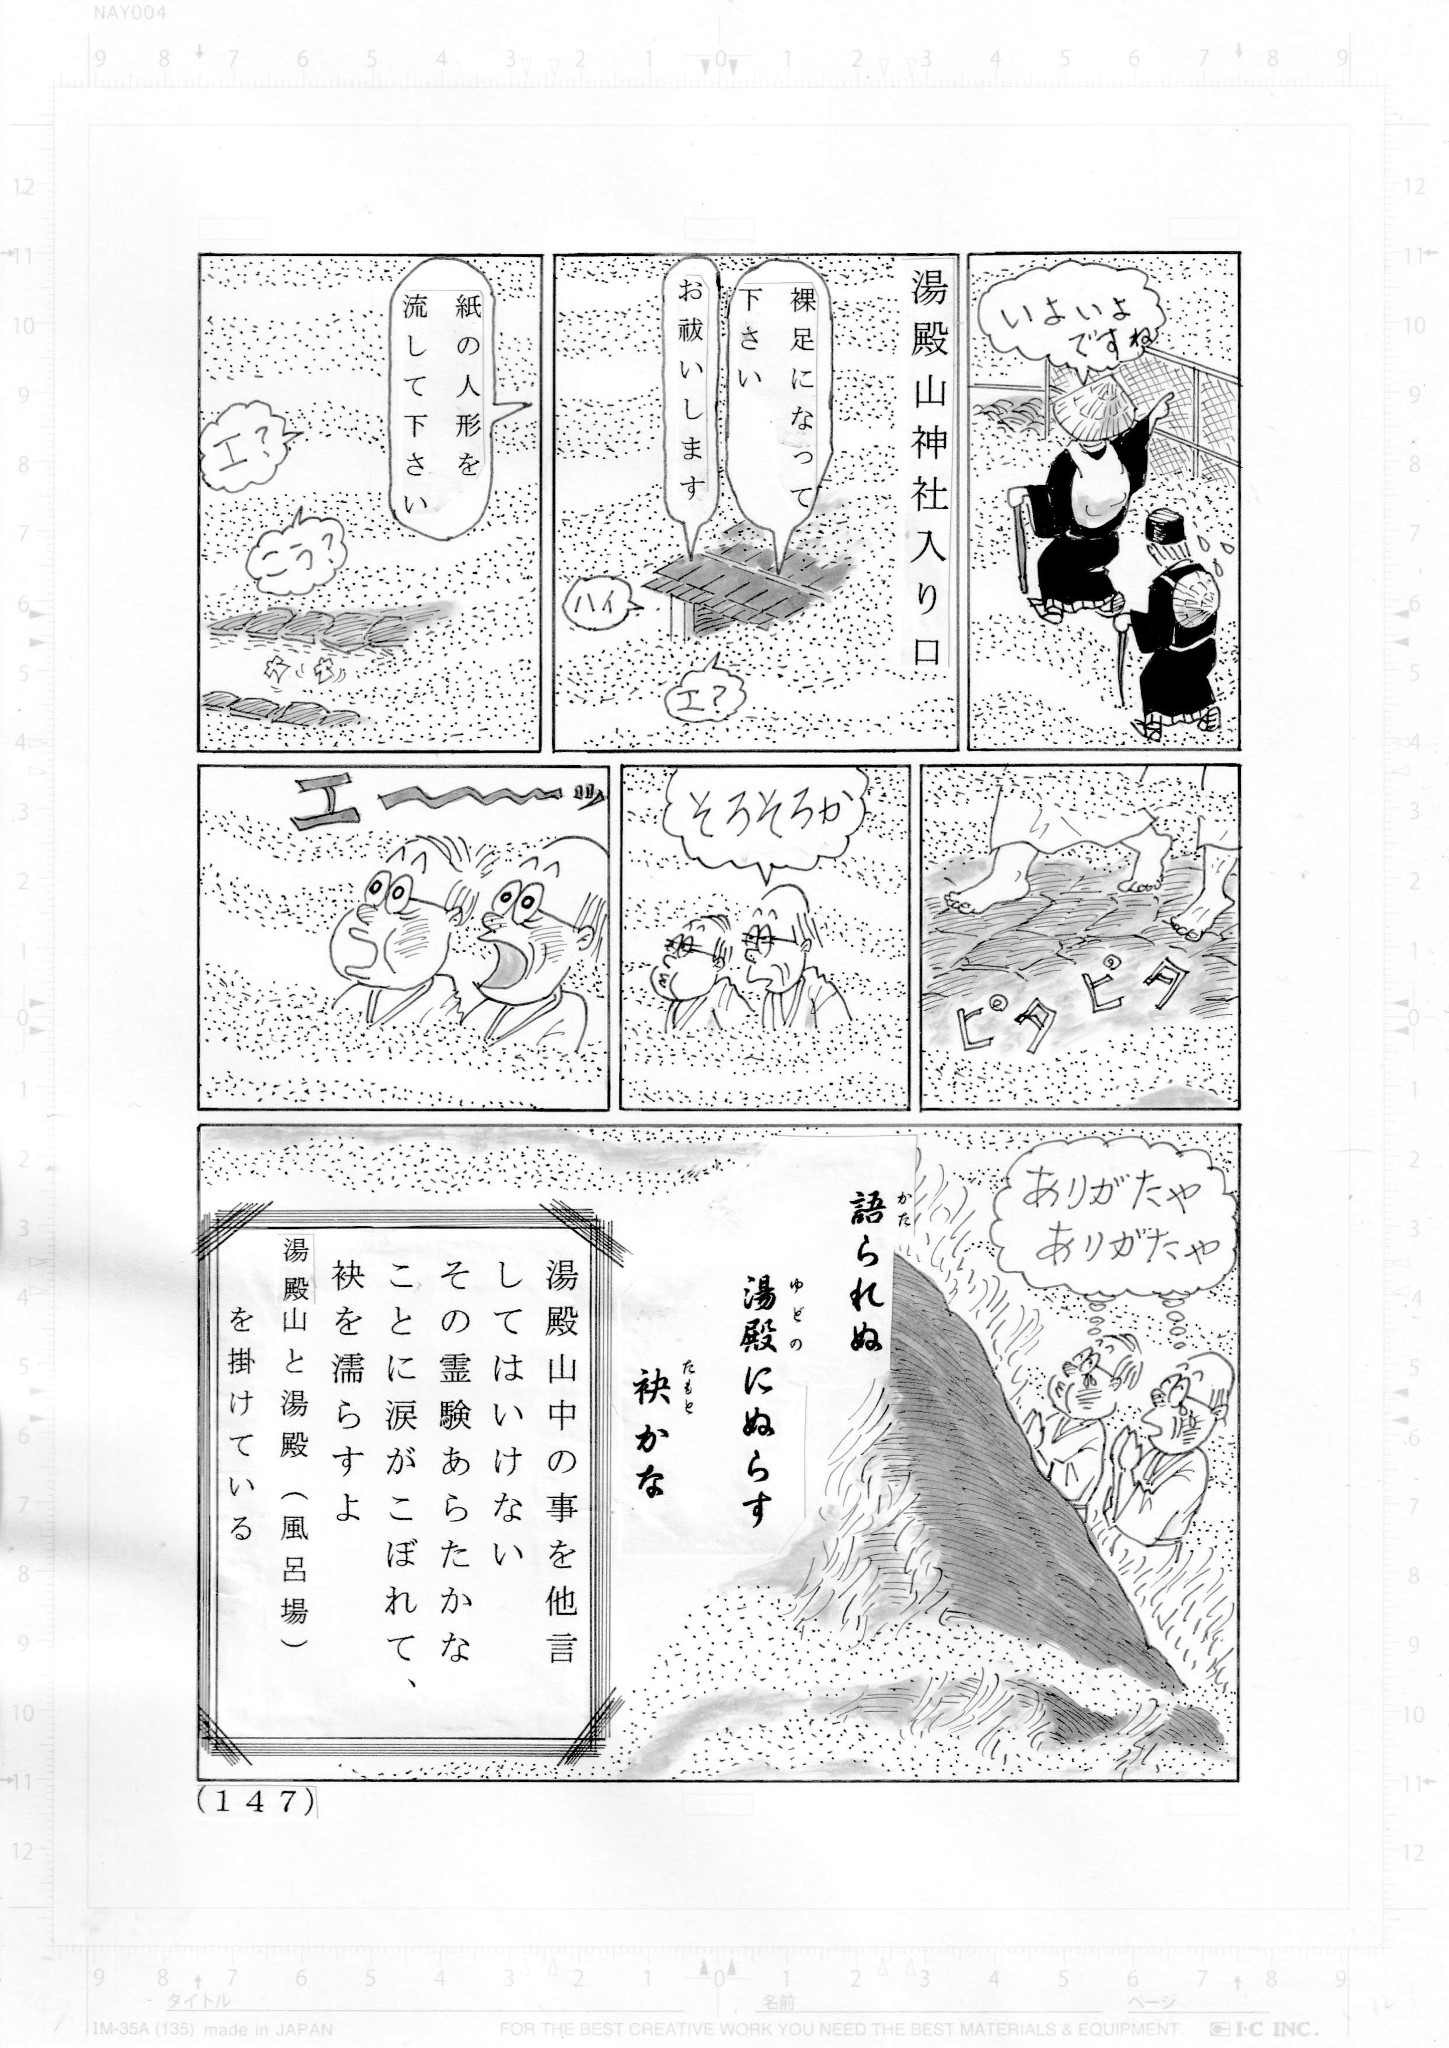 NAY004
いよいよ
ですね
湯殿山神社入り口
裸足になって
下さい
お祓いします
ハイ
エ?
紙の人形を
流して下さい
エ?
こう?
ピタピタ
そろそろか
エ〜〜〜ッ
ありがたや
ありがたや
語られぬ
かた
湯殿にぬらす
ゆどの
袂かな
たもと
湯殿山中の事を他言
してはいけない
その霊験あらたかな
ことに涙がこぼれて、
袂を濡らすよ
湯殿山と湯殿(風呂場)
を掛けている
(147)
タイトル
名前
ページ
IM-35A (135) made in JAPAN
FOR THE BEST CREATIVE WORK YOU NEED THE BEST MATERIALS & EQUIPMENT.
I·C INC.